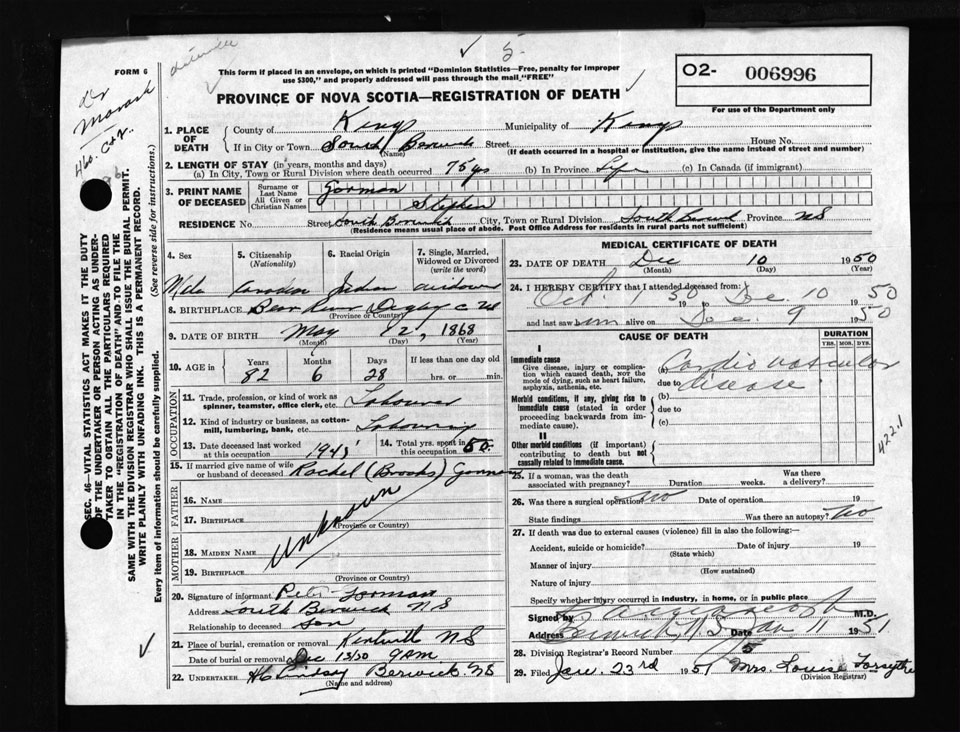 5
FORM 6
This form if placed in an envelope, on which is printed "Dominion Statistics—Free, penalty for improper
use $300," and properly addressed will pass through the mail "FREE"
O2- 006996
PROVINCE OF NOVA SCOTIA—REGISTRATION OF DEATH
For use of the Department only
1. PLACE OF DEATH
County of Kings Municipality of Kings
If in City or Town South Berwick Street House No.
(Name) (If death occurred in a hospital or institution, give the name instead of street and number)
2. LENGTH OF STAY (in years, months and days)
(a) In City, Town or Rural Division where death occurred 75 yrs (b) In Province Life (c) In Canada (if immigrant)
3. PRINT NAME OF DECEASED
Surname or Last Name Gorman
All Given or Christian Names Stephen
RESIDENCE No. Street South Berwick City, Town or Rural Division South Berwick Province NS
(Residence means usual place of abode. Post Office Address for residents in rural parts not sufficient)
4. Sex
5. Citizenship (Nationality)
6. Racial Origin
7. Single, Married, Widowed or Divorced (write the word)
Male Canadian Indian widower
8. BIRTHPLACE Bear River Digby
(Province or Country)
9. DATE OF BIRTH May 12, 1868
(Month) (Day) (Year)
10. AGE in Years Months Days If less than one day old
82 6 28 hrs. or min.
OCCUPATION
11. Trade, profession, or kind of work as spinner, teamster, office clerk, etc. Labourer
12. Kind of industry or business, as cotton-mill, lumbering, bank, etc. Labouring
13. Date deceased last worked at this occupation
14. Total yrs. spent in this occupation 50
15. If married give name of wife or husband of deceased Rachel (Brooks) Gorman
FATHER
16. Name
17. Birthplace
(Province or Country)
Unknown
MOTHER
18. Maiden Name
19. Birthplace
(Province or Country)
20. Signature of informant Peter Gorman
Address South Berwick NS
Relationship to deceased Son
21. Place of burial, cremation or removal Kentville NS
Date of burial or removal Dec 13/50 9AM
22. UNDERTAKER Lindsay Berwick NS
(Name and address)
MEDICAL CERTIFICATE OF DEATH
23. DATE OF DEATH Dec 10 1950
(Month) (Day) (Year)
24. I HEREBY CERTIFY that I attended deceased from:
Oct 1 50 to Dec 10 1950
and last saw him alive on Dec. 9 1950
CAUSE OF DEATH
DURATION
YRS. MOS. DYS.
I
Immediate cause
Give disease, injury or complication which caused death, NOT the mode of dying, such as heart failure, asphyxia, asthenia, etc.
(a) Cardio vascular
due to disease
Morbid conditions, if any, giving rise to immediate cause (stated in order proceeding backwards from immediate cause).
(b)
due to
(c)
II
Other morbid conditions (if important) contributing to death but not causally related to immediate cause.
422.1
25. If a woman, was the death associated with pregnancy? Duration weeks. Was there a delivery?
26. Was there a surgical operation? no Date of operation 19
State findings Was there an autopsy? no
27. If death was due to external causes (violence) fill in also the following:—
Accident, suicide or homicide? Date of injury 19
(State which)
Manner of injury
(How sustained)
Nature of injury
Specify whether injury occurred in industry, in home, or in public place
Signed by M.D.
Address Berwick, N.S. Date Jan 11 1951
28. Division Registrar's Record Number 5
29. Filed Jan 23rd 1951 Mrs. Louise Forsythe
(Division Registrar)
SEC. 46—VITAL STATISTICS ACT MAKES IT THE DUTY
OF THE UNDERTAKER OR PERSON ACTING AS UNDER-
TAKER TO OBTAIN ALL THE PARTICULARS REQUIRED
IN THE "REGISTRATION OF DEATH" AND TO FILE THE
SAME WITH THE DIVISION REGISTRAR WHO SHALL ISSUE THE BURIAL PERMIT.
WRITE PLAINLY WITH UNFADING INK. THIS IS A PERMANENT RECORD.
Every item of information should be carefully supplied. (See reverse side for instructions.)